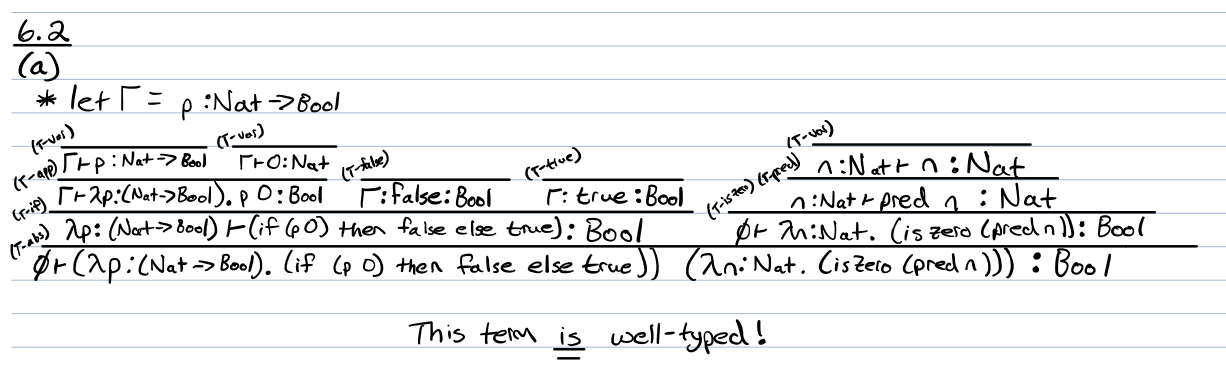 6.2
(a)
* let Γ = p : Nat → Bool
(T-var) (T-var) (T-var)
Γ ⊢ p : Nat → Bool Γ ⊢ 0 : Nat (T-false) (T-true) n : Nat ⊢ n : Nat
(T-app) Γ ⊢ λp : (Nat → Bool). p 0 : Bool Γ : false : Bool Γ : true : Bool (T-iszero) (T-pred) n : Nat ⊢ pred n : Nat
(T-if) λp : (Nat → Bool) ⊢ (if (p 0) then false else true) : Bool ∅ ⊢ λn : Nat. (iszero (pred n)) : Bool
(T-abs) ∅ ⊢ (λp : (Nat → Bool). (if (p 0) then false else true)) (λn : Nat. (iszero (pred n))) : Bool
This term is well-typed!